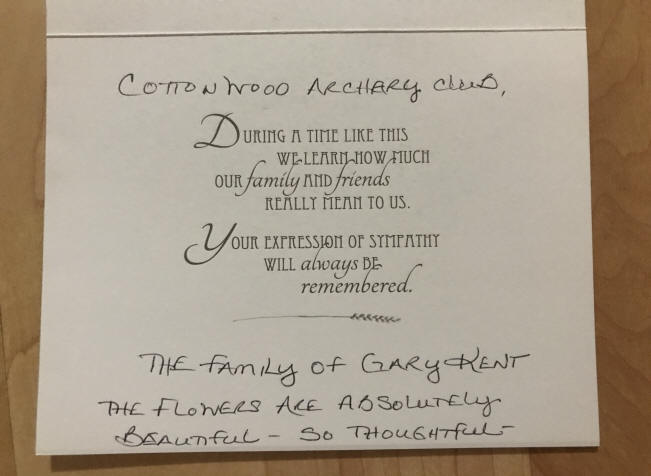 COTTONWOOD ARCHERY CLUB,
DURING A TIME LIKE THIS
WE LEARN HOW MUCH
OUR family AND friends
REALLY MEAN TO US.
YOUR EXPRESSION OF SYMPATHY
WILL always BE
remembered.
THE FAMILY OF GARY KENT
THE FLOWERS ARE ABSOLUTELY
BEAUTIFUL - SO THOUGHTFUL -